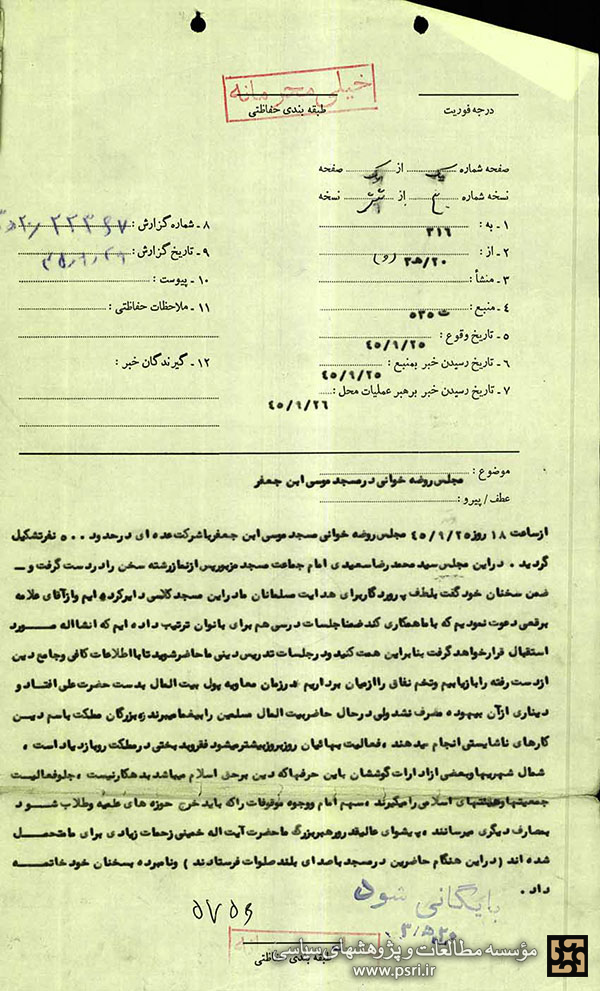 خیلی محرمانه
درجه فوریت
طبقه بندی حفاظتی
صفحه شماره یک از یک صفحه
نسخه شماره از شش نسخه
۱ ـ به : ۳۱۶
۲ ـ از : ۲۰/ه۳
۳ ـ منشأ :
۴ ـ منبع : ۵۳۵
۵ ـ تاریخ وقوع : ۴۵/۹/۲۵
۶ ـ تاریخ رسیدن خبر بمنبع : ۴۵/۹/۲۵
۷ ـ تاریخ رسیدن خبر برهبر عملیات محل : ۴۵/۹/۲۶
۸ ـ شماره گزارش :
۹ ـ تاریخ گزارش :
۱۰ ـ پیوست :
۱۱ ـ ملاحظات حفاظتی :
۱۲ ـ گیرندگان خبر :
موضوع : مجلس روضه خوانی در مسجد موسی ابن جعفر
عطف/ پیرو :
از ساعت ۱۸ روز ۴۵/۹/۲۵ مجلس روضه خوانی مسجد موسی ابن جعفر با شرکت عده ای در حدود ۵۰۰ نفر تشکیل
گردید . در این مجلس سید محمد رضا سعیدی امام جماعت مسجد مزبور پس از نماز رشته سخن را در دست گرفت و ــ
ضمن سخنان خود گفت بلطف پروردگار برای هدایت مسلمانان ما در این مسجد کلاسی دایر کرده ایم و از آقای علامه
برقعی دعوت نمودیم که با ما همکاری کند ضمنا جلسات درسی هم برای بانوان ترتیب داده ایم که انشااله مـــورد
استقبال قرار خواهد گرفت بنابراین همت کنید و در جلسات تدریس دینی ما حاضر شوید تا با اطلاعات کافی و جامع دین
از دست رفته را بازیابیم و تخم نفاق را از میان برداریم در زمان معاویه پول بیت المال بدست حضرت علی افتاد و
دیناری از آن بیهوده مصرف نشد ولی در حال حاضر بیت المال مسلمین را بیغما میبرند بزرگان مملکت باسم دیــن
کارهای ناشایستی انجام میدهند ، فعالیت بهائیان روز بروز بیشتر میشود فقر و بدبختی در مملکت رو بازدیاد است ،
شمال شهریها و بعضی از ادارات گوششان باین حرفها که دین بر حق اسلام میباشد بدهکار نیست ، جلو فعالیت
جمعیتها و هیئتهای اسلامی را میگیرند ، سهم امام و وجوه موقوفات را که باید خرج حوزه های علمیه و طلاب شــود
بمصارف دیگری میرسانند ، پیشوای عالیقدر و رهبر بزرگ ما حضرت آیت اله خمینی زحمات زیادی برای ما متحمــل
شده اند ( در این هنگام حاضرین در مسجد با صدای بلند صلوات فرستادند ) و نامبرده بسخنان خود خاتمــه
داد .
بایگانی شود
طبقه بندی حفاظتی
مؤسسه مطالعات و پژوهشهای سیاسی
www.psri.ir